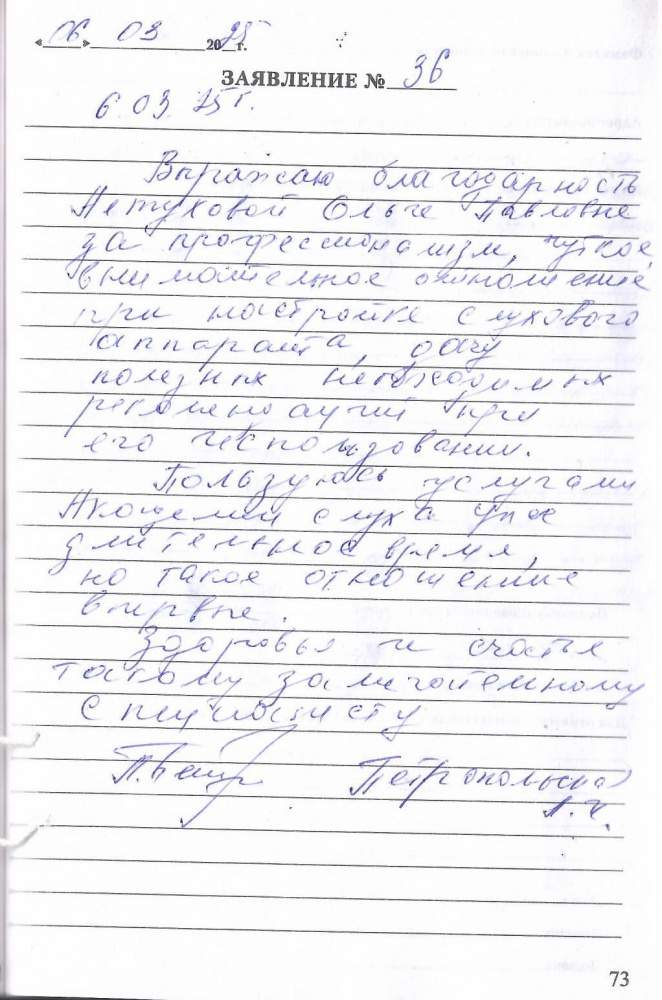 «06» 03 2025 г.
ЗАЯВЛЕНИЕ № 36
6.03.25 г.
Выражаю благодарность
Петуховой Ольге Павловне
за профессионализм, чуткое,
внимательное отношение
при настройке слухового
аппарата, дачу
полезных необходимых
рекомендаций при
его использовании.
Пользуюсь услугами
Академии слуха уже
длительное время,
но такое отношение
впервые.
Здоровья и счастья
такому замечательному
специалисту
Петропольская
73